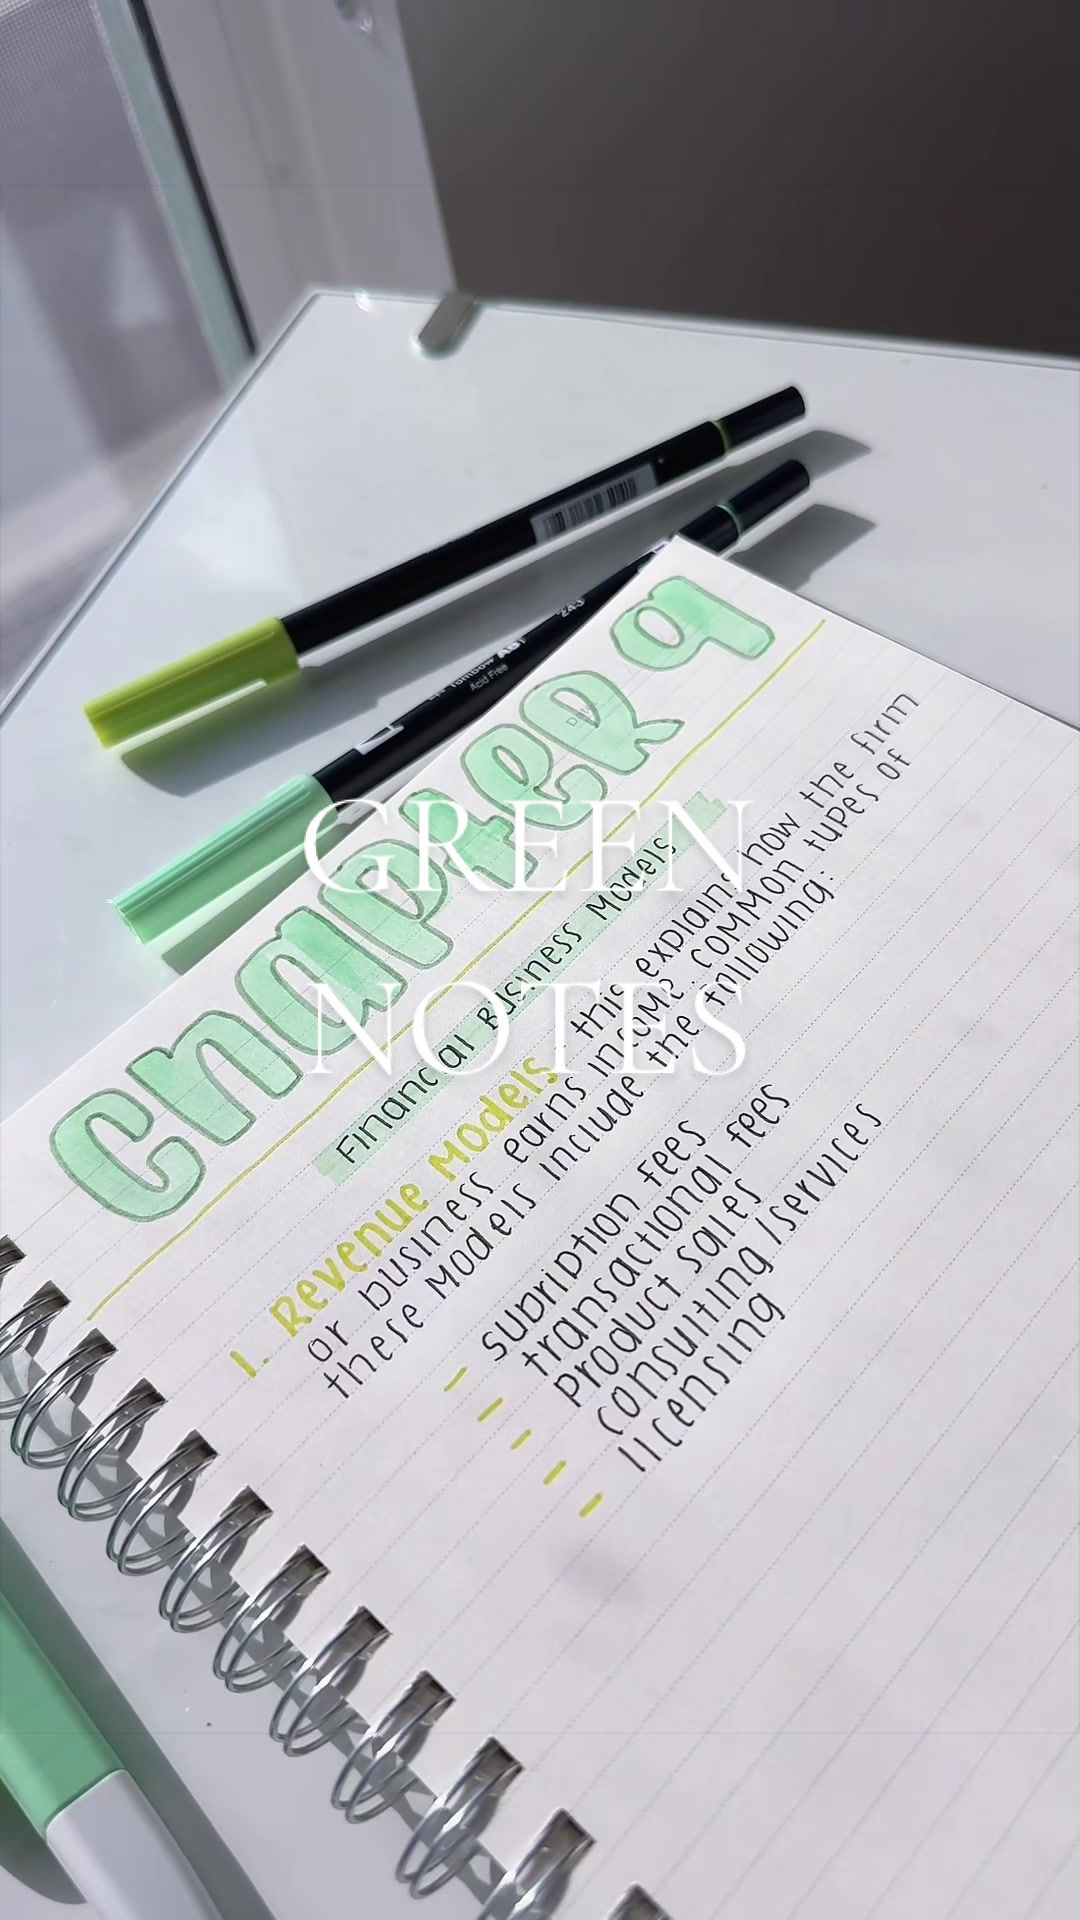 chapter 9
Financial Business Models
1. Revenue Models : this explains how the firm
or business earns income. common types of
these models include the following:
- subription fees
- transactional fees
- product sales
- consulting /services
- licensing
GREEN
NOTES
Tombow ABT
Acid Free
243